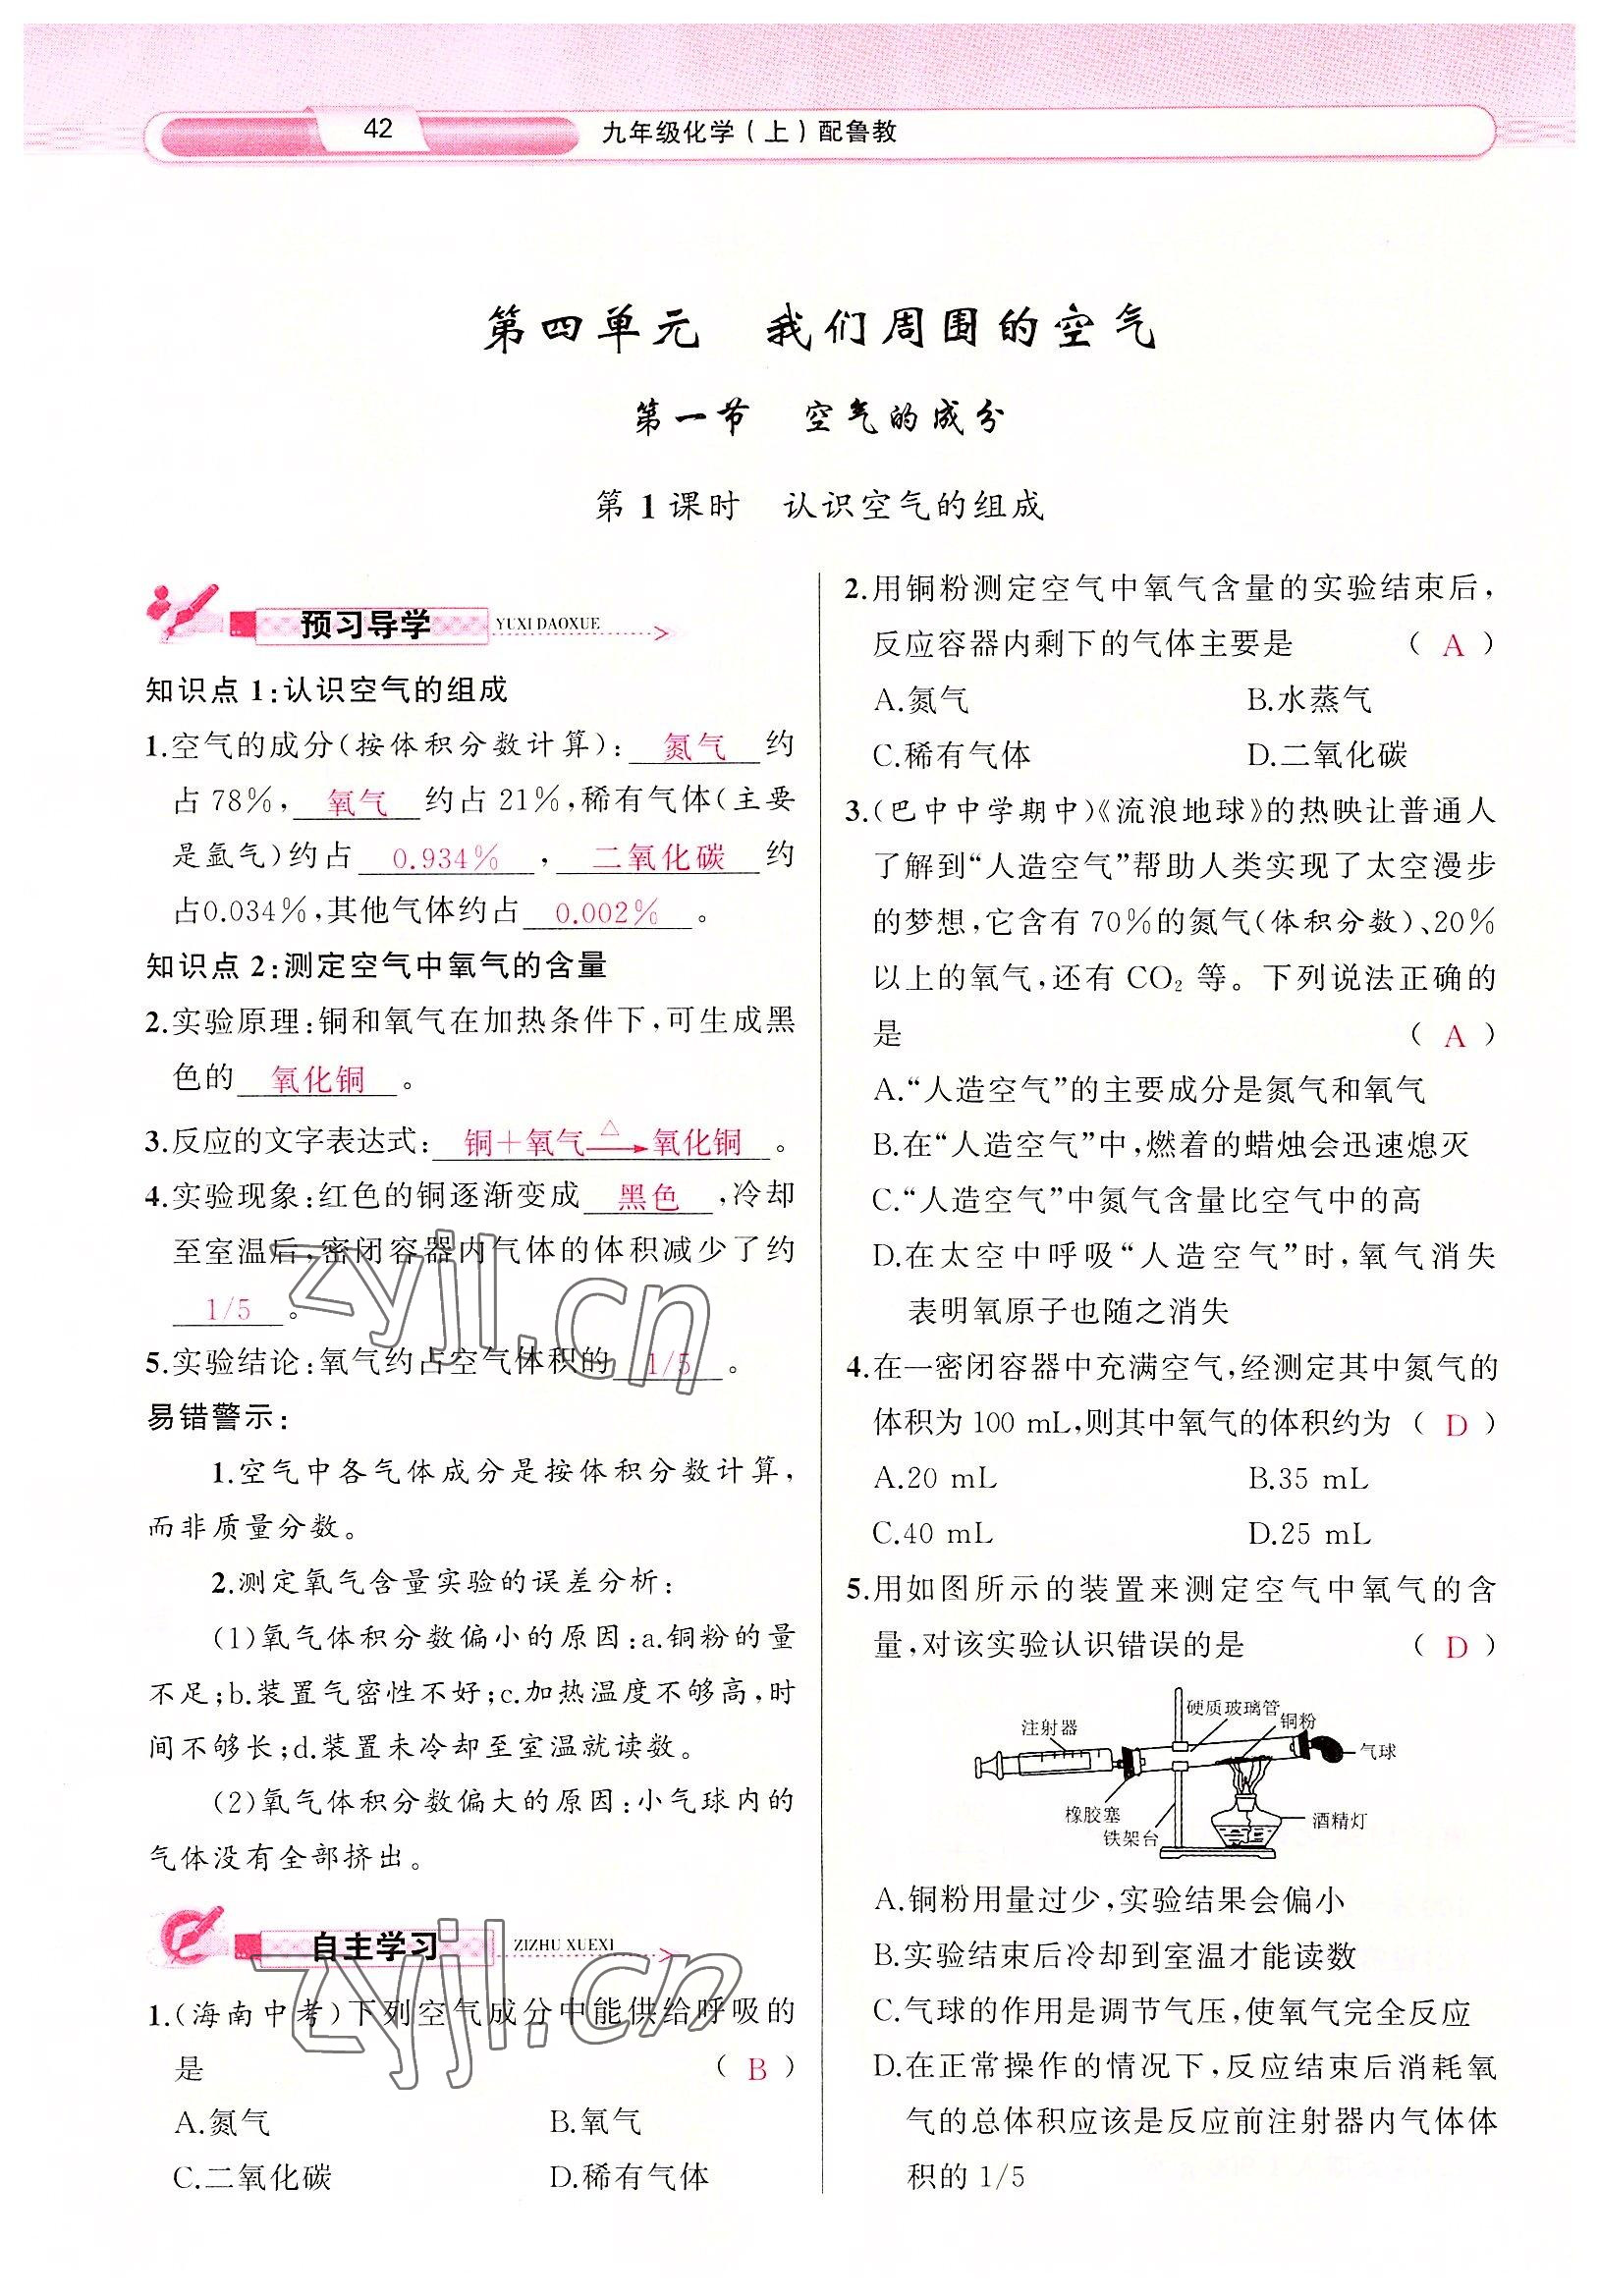 42
九年级化学(上)配鲁教
第四单元 我们周围的空气
第一节 空气的成分
第1课时 认识空气的组成
预习导学 YUXI DAOXUE
知识点1:认识空气的组成
1.空气的成分(按体积分数计算): 氮气 约
占78%, 氧气 约占21%,稀有气体(主要
是氩气)约占 0.934% , 二氧化碳 约
占0.034%,其他气体约占 0.002% 。
知识点2:测定空气中氧气的含量
2.实验原理:铜和氧气在加热条件下,可生成黑
色的 氧化铜 。
3.反应的文字表达式: 铜+氧气 △→ 氧化铜 。
4.实验现象:红色的铜逐渐变成 黑色 ,冷却
至室温后,密闭容器内气体的体积减少了约
1/5 。
5.实验结论:氧气约占空气体积的 1/5 。
易错警示:
1.空气中各气体成分是按体积分数计算,
而非质量分数。
2.测定氧气含量实验的误差分析:
(1)氧气体积分数偏小的原因:a.铜粉的量
不足;b.装置气密性不好;c.加热温度不够高,时
间不够长;d.装置未冷却至室温就读数。
(2)氧气体积分数偏大的原因:小气球内的
气体没有全部挤出。
自主学习 ZIZHU XUEXI
1.(海南中考)下列空气成分中能供给呼吸的
是 ( B )
A.氮气 B.氧气
C.二氧化碳 D.稀有气体
2.用铜粉测定空气中氧气含量的实验结束后,
反应容器内剩下的气体主要是 ( A )
A.氮气 B.水蒸气
C.稀有气体 D.二氧化碳
3.(巴中中学期中)《流浪地球》的热映让普通人
了解到“人造空气”帮助人类实现了太空漫步
的梦想,它含有70%的氮气(体积分数)、20%
以上的氧气,还有CO₂等。下列说法正确的
是 ( A )
A.“人造空气”的主要成分是氮气和氧气
B.在“人造空气”中,燃着的蜡烛会迅速熄灭
C.“人造空气”中氮气含量比空气中的高
D.在太空中呼吸“人造空气”时,氧气消失
表明氧原子也随之消失
4.在一密闭容器中充满空气,经测定其中氮气的
体积为100 mL,则其中氧气的体积约为 ( D )
A.20 mL B.35 mL
C.40 mL D.25 mL
5.用如图所示的装置来测定空气中氧气的含
量,对该实验认识错误的是 ( D )
硬质玻璃管
注射器 铜粉
气球
橡胶塞
铁架台 酒精灯
A.铜粉用量过少,实验结果会偏小
B.实验结束后冷却到室温才能读数
C.气球的作用是调节气压,使氧气完全反应
D.在正常操作的情况下,反应结束后消耗氧
气的总体积应该是反应前注射器内气体体
积的1/5
zyjl.cn
zyjl.cn